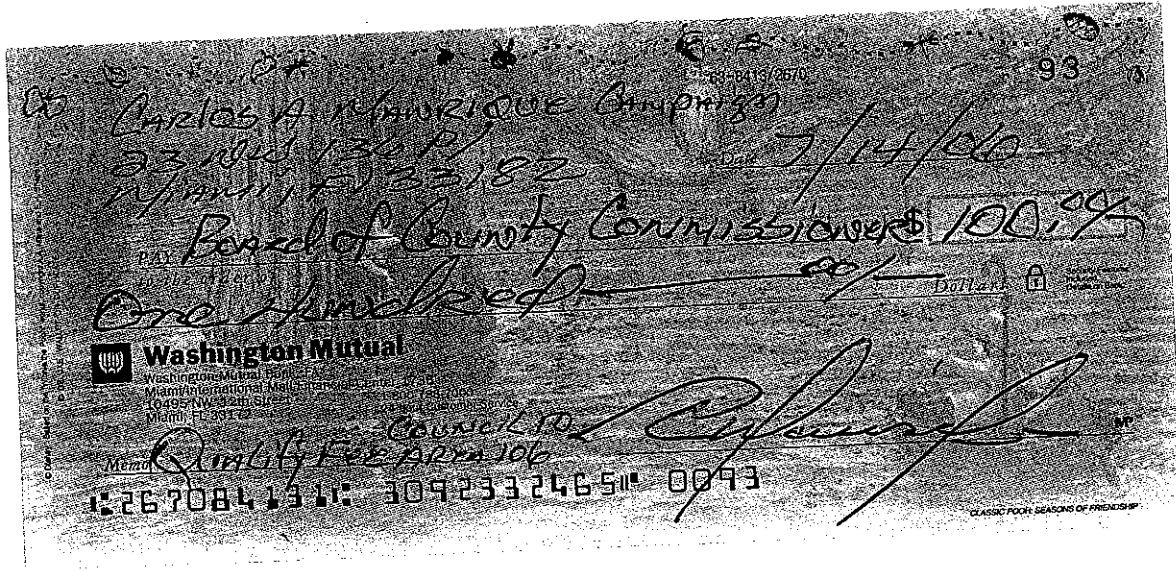 63-8413/2670
93
CARLOS A. MANRIQUE Campaign
23 NW 130 Pl
MIAMI, Fl 33182
Date 7/14/06
PAY Board of County Commissioners $ 100.00/
One Hundred 00/ Dollars
Washington Mutual
Washington Mutual Bank, FA
10495 NW 12th Street
Miami, FL 33172
COUNCIL 10
Memo Qualify Fee AREA 106
267084131 3092332465 0093
MP
CLASSIC POOH: SEASONS OF FRIENDSHIP